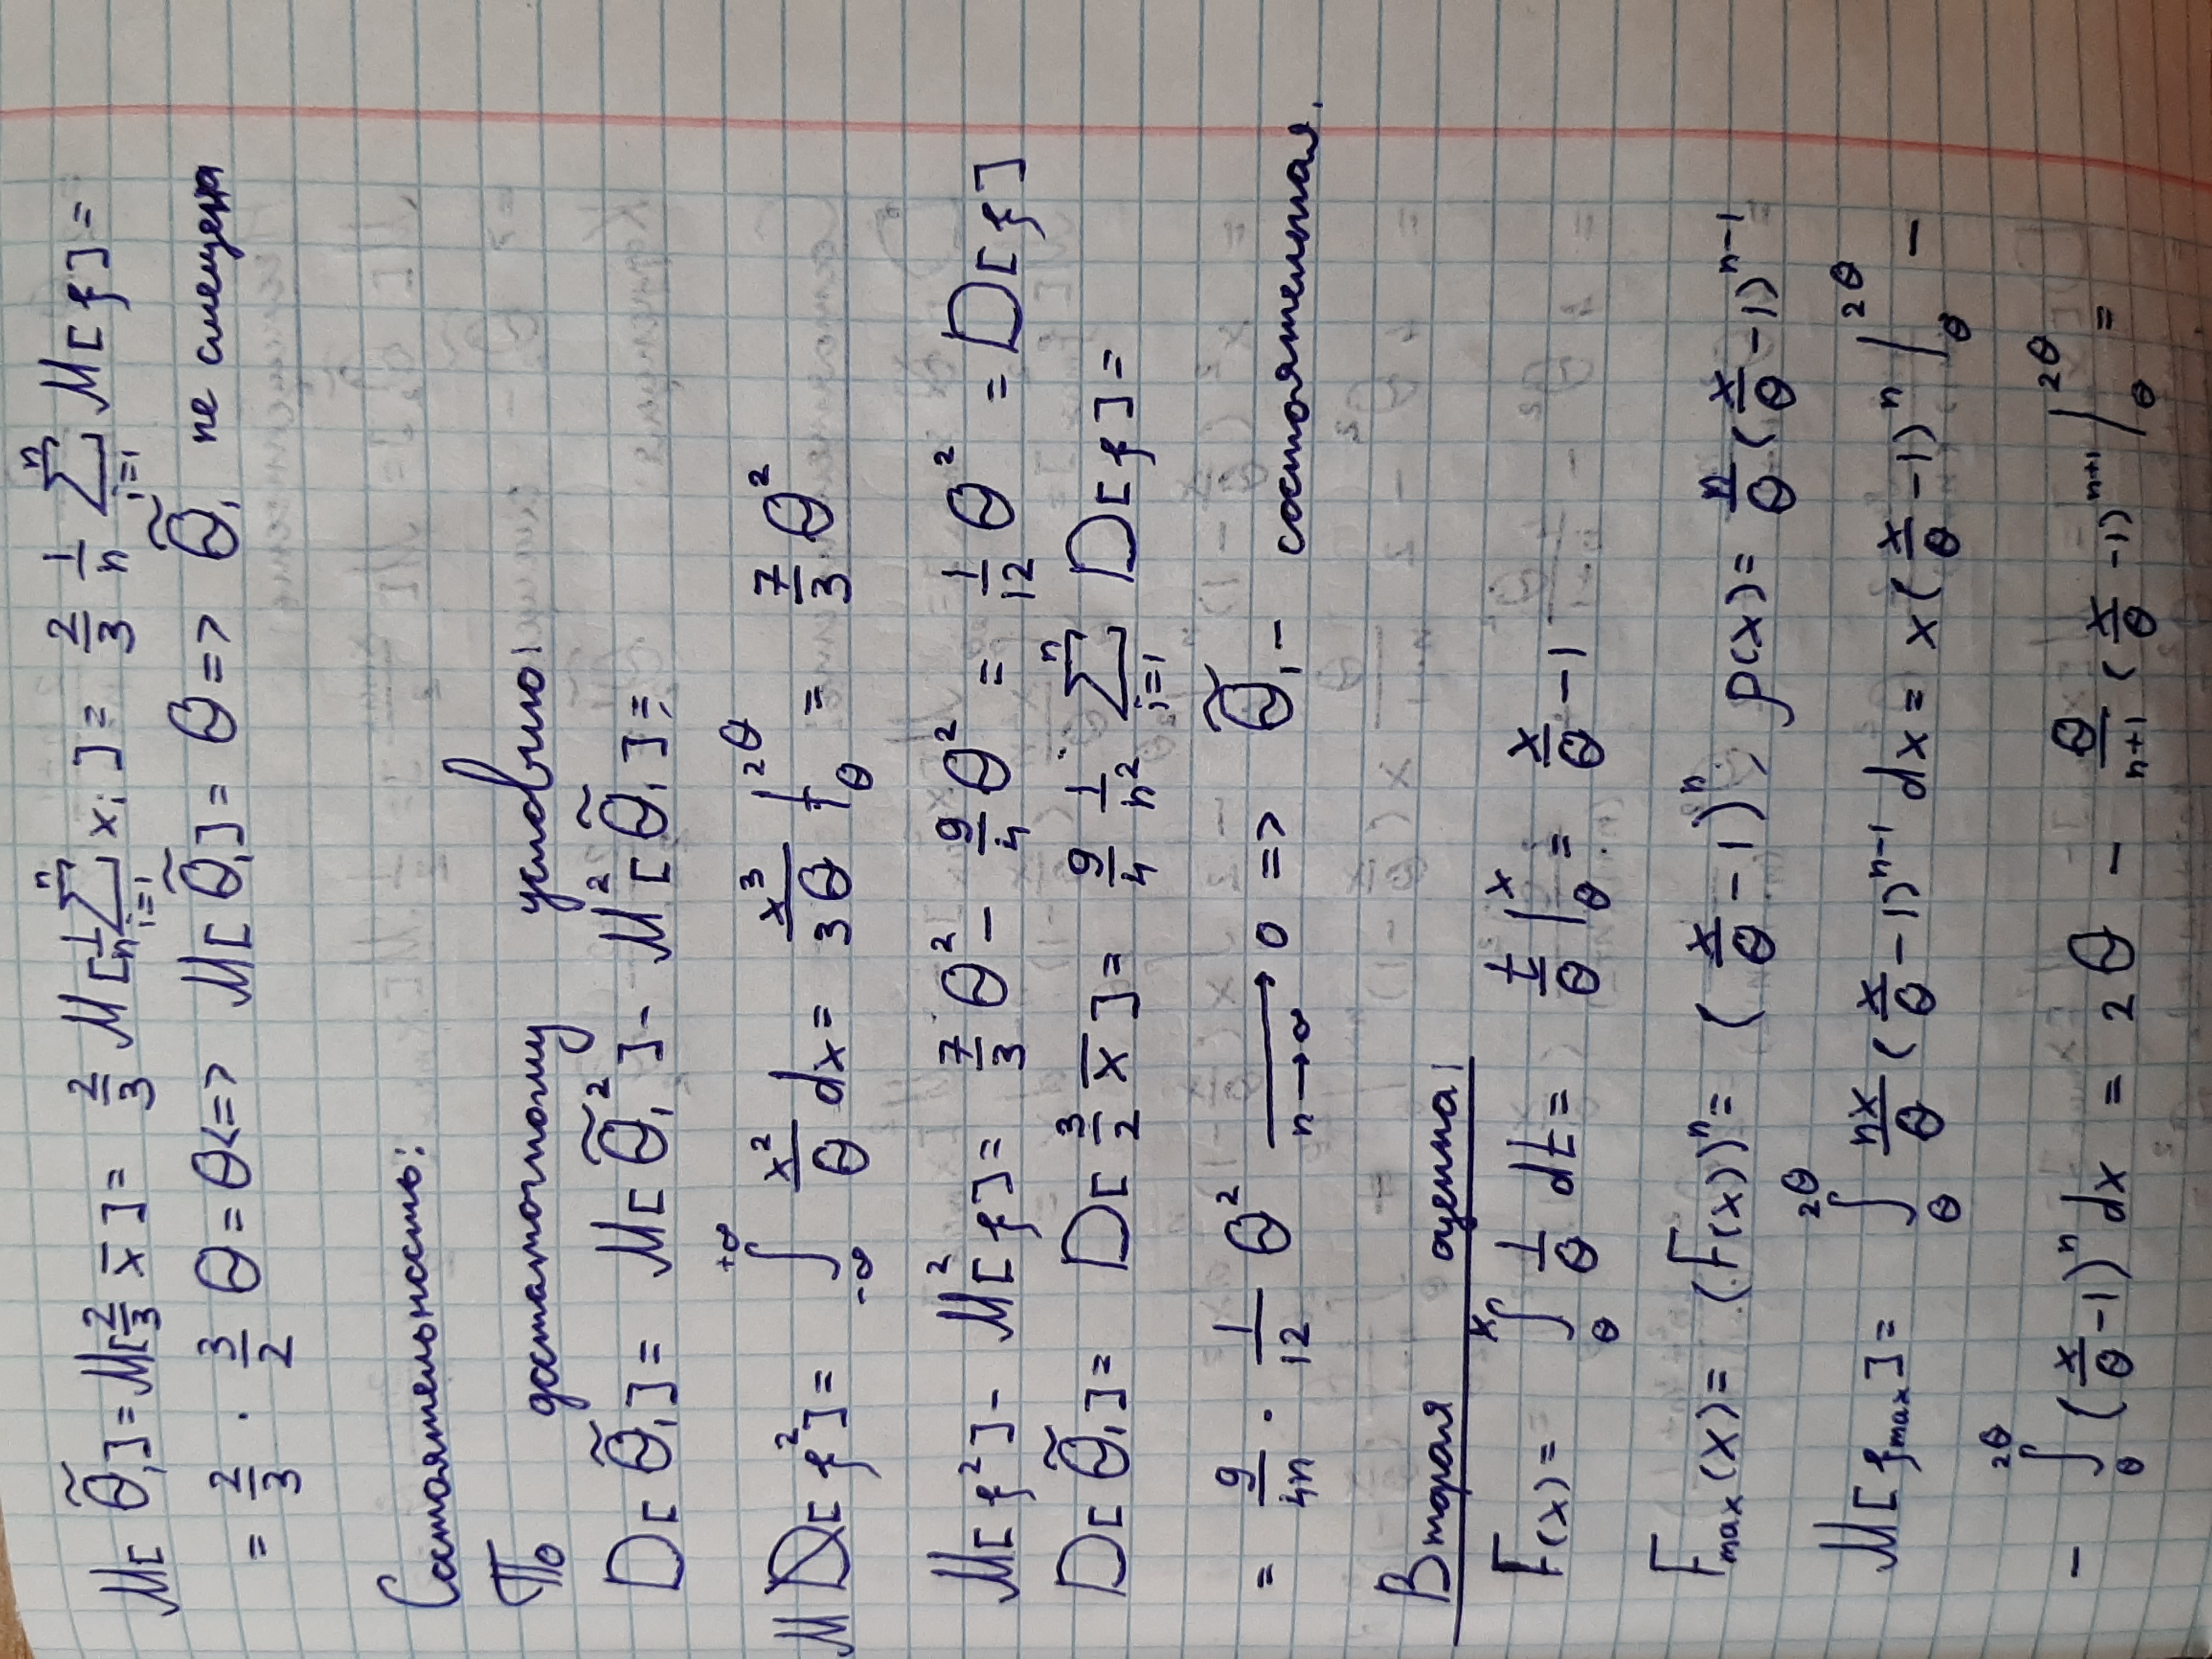 M[θ̃₁] = M[2/3 x̄] = 2/3 M[1/n ∑ᵢ₌₁ⁿ xᵢ] = 2/3 1/n ∑ᵢ₌₁ⁿ M[ξ] =
= 2/3 · 3/2 θ = θ <=> M[θ̃₁] = θ => θ̃₁ не смещена
Состоятельность:
По достаточному условию:
D[θ̃₁] = M[θ̃₁²] - M²[θ̃₁] =
M D[ξ²] = ∫₋∞^+∞ x²/θ dx = x³/3θ |_θ^2θ = 7/3 θ²
M[ξ²] - M²[ξ] = 7/3 θ² - 9/4 θ² = 1/12 θ² = D[ξ]
D[θ̃₁] = D[3/2 x̄] = 9/4 1/n² ∑ᵢ₌₁ⁿ D[ξ] =
= 9/4n · 1/12 θ² ⟶_{n→∞} 0 => θ̃₁ - состоятельная.
Вторая оценка:
F(x) = ∫_θ^x 1/θ dt = t/θ |_θ^x = x/θ - 1
F_max(x) = (F(x))ⁿ = (x/θ - 1)ⁿ; p(x) = n/θ (x/θ - 1)ⁿ⁻¹
M[ξ_max] = ∫_θ^2θ nx/θ (x/θ - 1)ⁿ⁻¹ dx = x(x/θ - 1)ⁿ |_θ^2θ -
- ∫_θ^2θ (x/θ - 1)ⁿ dx = 2θ - θ/n+1 (x/θ - 1)ⁿ⁺¹ |_θ^2θ =